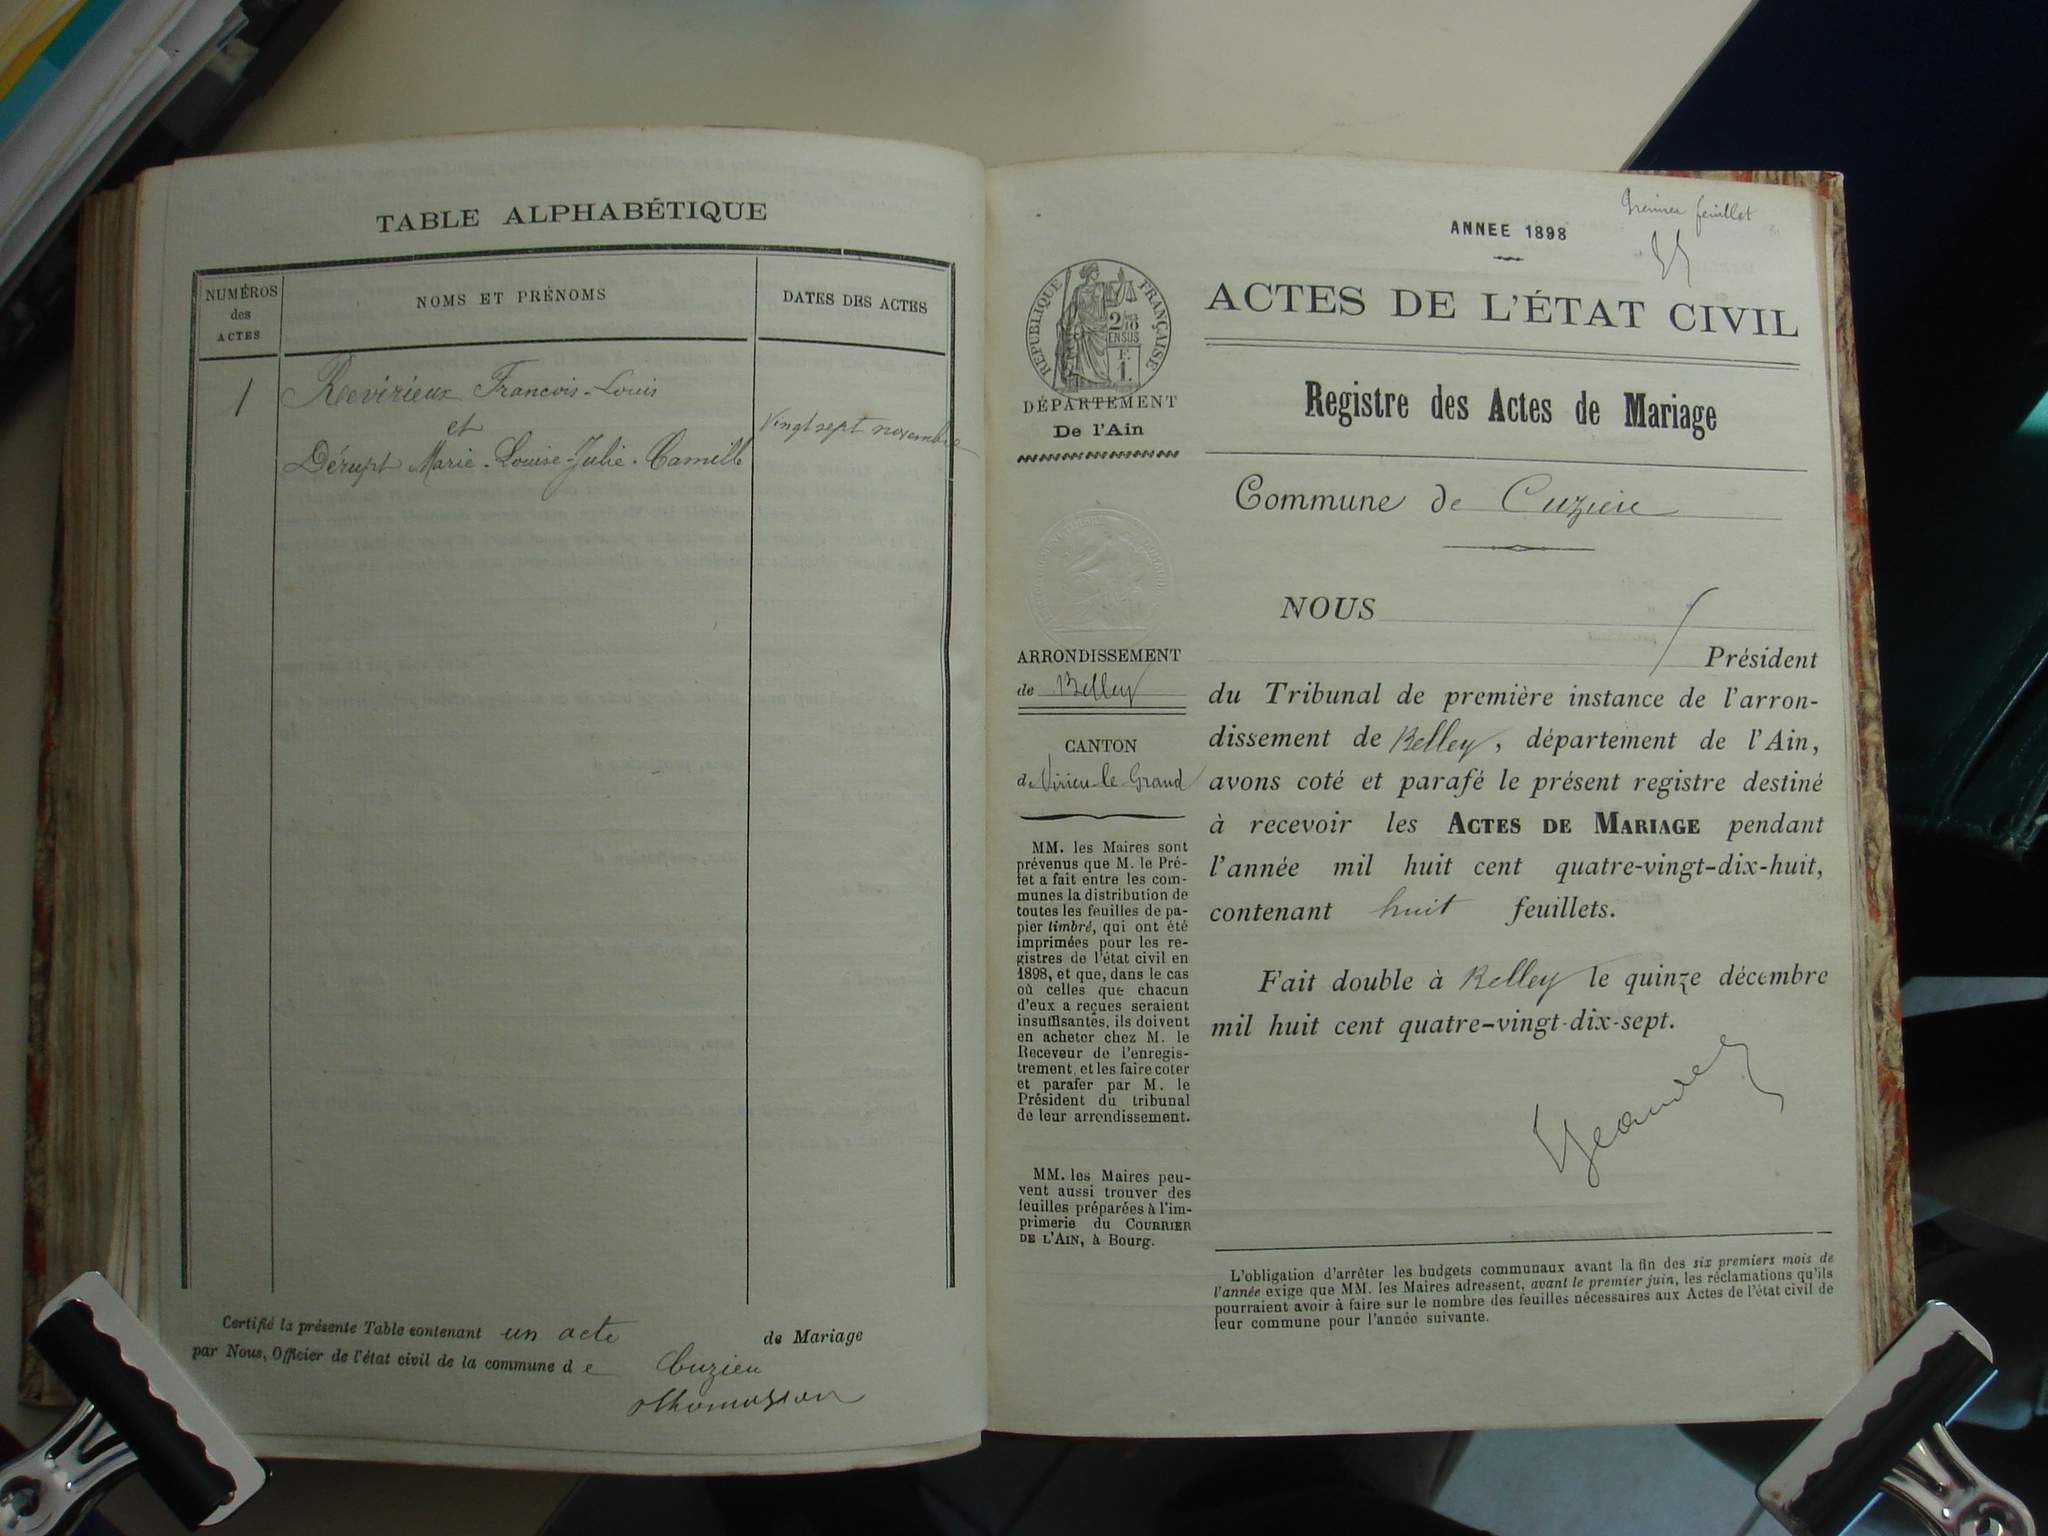 TABLE ALPHABÉTIQUE
NUMÉROS
des
ACTES
NOMS ET PRÉNOMS
DATES DES ACTES
1
Revirieux François-Louis
et
Dérupt Marie-Louise-Julie-Camille
Vingt sept novembre
Certifié la présente Table contenant un acte de Mariage
par Nous, Officier de l'état civil de la commune de Cuzieu
Thomasson
Premier feuillet
ANNEE 1898
ACTES DE L'ÉTAT CIVIL
RÉPUBLIQUE FRANÇAISE
2/10
EN SUS
F.
1.
DÉPARTEMENT
De l'Ain
ARRONDISSEMENT
de Belley
CANTON
de Virieu-le-Grand
MM. les Maires sont
prévenus que M. le Pré-
fet a fait entre les com-
munes la distribution de
toutes les feuilles de pa-
pier timbré, qui ont été
imprimées pour les re-
gistres de l'état civil en
1898, et que, dans le cas
où celles que chacun
d'eux a reçues seraient
insuffisantes, ils doivent
en acheter chez M. le
Receveur de l'enregis-
trement, et les faire coter
et parafer par M. le
Président du tribunal
de leur arrondissement.
MM. les Maires peu-
vent aussi trouver des
feuilles préparées à l'im-
primerie du COURRIER
DE L'AIN, à Bourg.
Registre des Actes de Mariage
Commune de Cuzieu
NOUS
Président
du Tribunal de première instance de l'arron-
dissement de Belley, département de l'Ain,
avons coté et parafé le présent registre destiné
à recevoir les ACTES DE MARIAGE pendant
l'année mil huit cent quatre-vingt-dix-huit,
contenant huit feuillets.
Fait double à Belley le quinze décembre
mil huit cent quatre-vingt-dix-sept.
L'obligation d'arrêter les budgets communaux avant la fin des six premiers mois de
l'année exige que MM. les Maires adressent, avant le premier juin, les réclamations qu'ils
pourraient avoir à faire sur le nombre des feuilles nécessaires aux Actes de l'état civil de
leur commune pour l'année suivante.